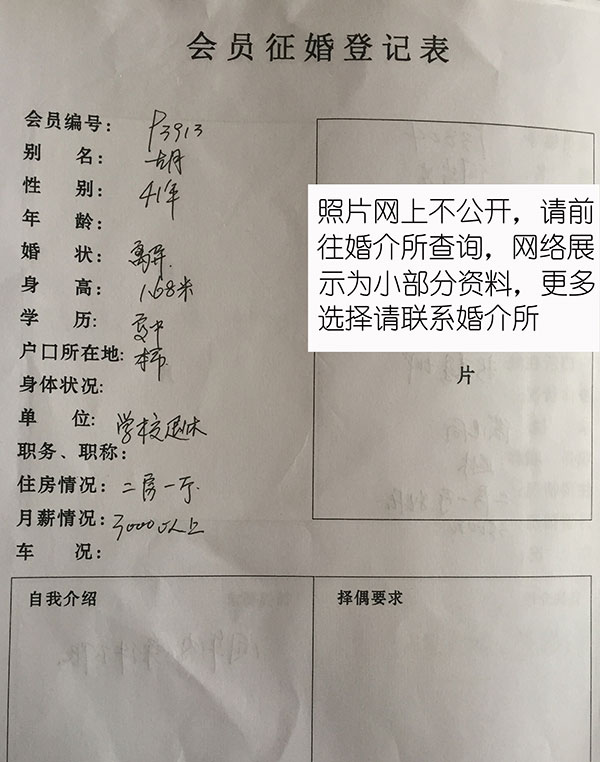 会员征婚登记表
会员编号: P3913
别 名: 胡
性 别: 41年
年 龄:
婚 状: 离异
身 高: 1.68米
学 历: 高中
户口所在地: 本市
身体状况:
单 位: 学校退休
职务、职称:
住房情况: 二房一厅
月薪情况: 3000以上
车 况:
照片网上不公开，请前
往婚介所查询，网络展
示为小部分资料，更多
选择请联系婚介所
片
自我介绍
择偶要求